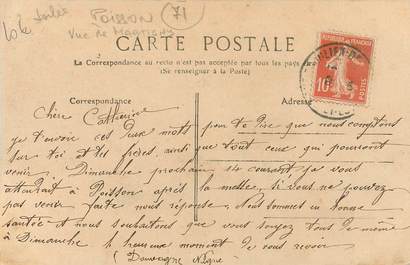 Poisson
71
Vue de Martigny
CARTE POSTALE
La Correspondance au recto n'est pas acceptée par tous les pays
(Se renseigner à la Poste)
Correspondance
Adresse
REPUBLIQUE FRANÇAISE
10
POSTES
Chère Catherine
Je t'envoie ces deux mots pour te dire que nous comptons
sur toi et tes frères ainsi que tout ceux qui pourront
venir. Dimanche prochain 14 courant je vous
attendrait à Poisson après la messe, si vous ne pouvez
pas venir faite nous réponse. Nous sommes en bonne
santée et nous souhaitons que vous soyez tous de même
à Dimanche heureux moment de vous revoir